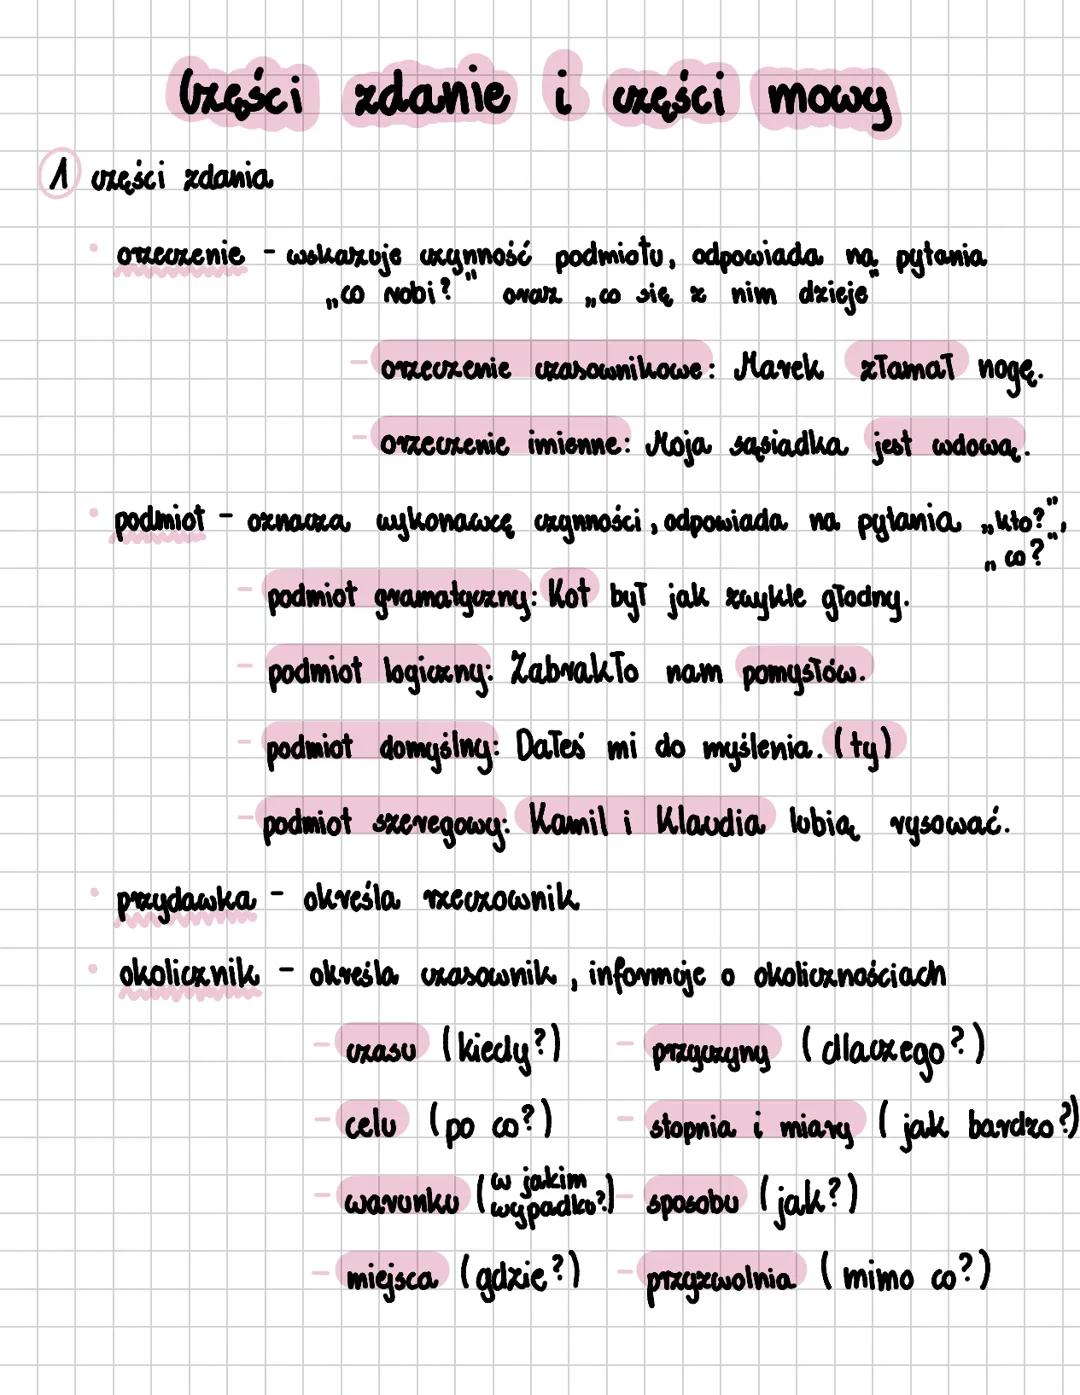 Części zdanie i części mowy
1 części zdania
• orzeczenie - wskazuje czynność podmiotu, odpowiada na pytania
„co robi?" oraz „co się z nim dzieje"
- orzeczenie czasownikowe: Marek złamał nogę.
- orzeczenie imienne: Moja sąsiadka jest wdową.
• podmiot - oznacza wykonawcę czynności, odpowiada na pytania „kto?",
„co?"
- podmiot gramatyczny: Kot był jak zwykle głodny.
- podmiot logiczny: Zabrakło nam pomysłów.
- podmiot domyślny: Dałeś mi do myślenia. (ty)
- podmiot szeregowy: Kamil i Klaudia lubią rysować.
• przydawka - określa rzeczownik
• okolicznik - określa czasownik, informuje o okolicznościach
- czasu (kiedy?) - przyczyny (dlaczego?)
- celu (po co?) - stopnia i miary (jak bardzo?)
- warunku (w jakim wypadku?) - sposobu (jak?)
- miejsca (gdzie?) - przyzwolnia (mimo co?)